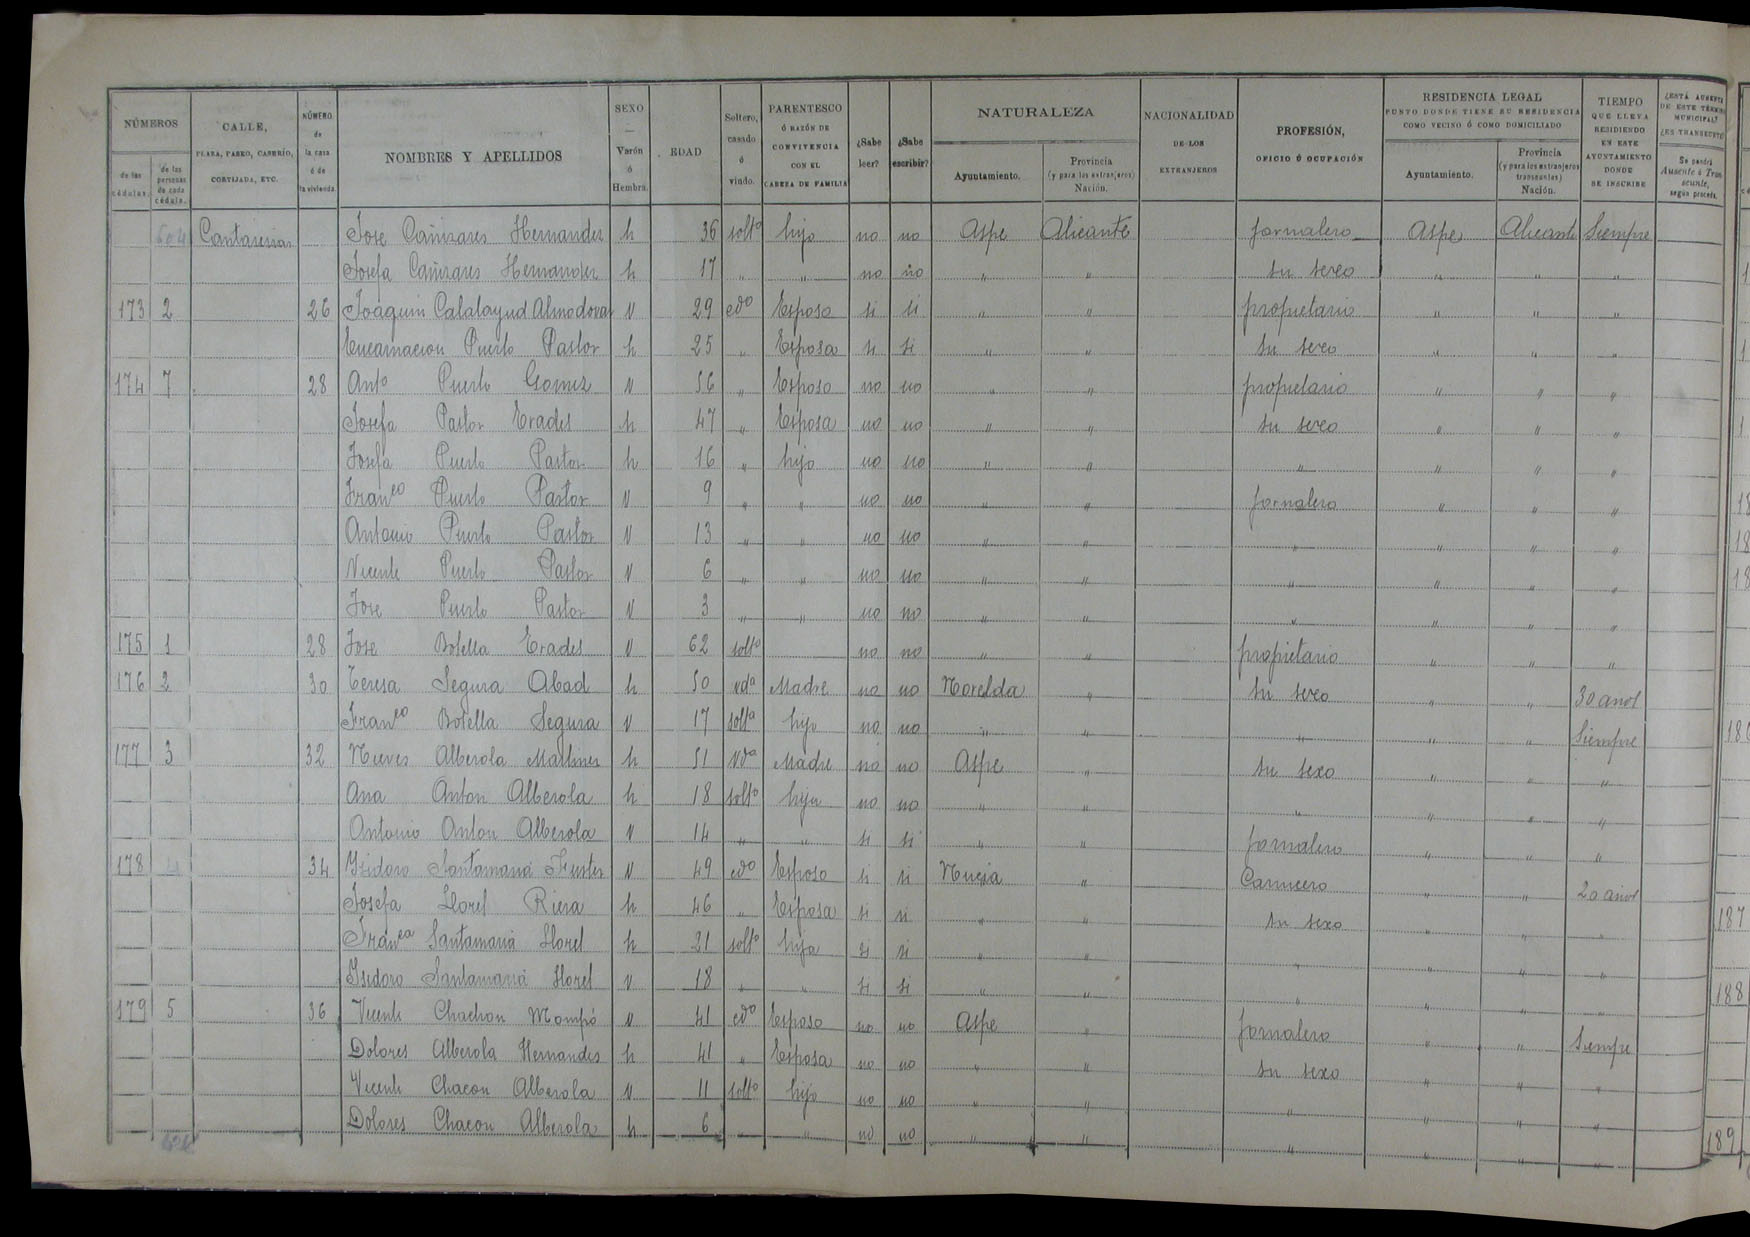 NÚMEROS
de las cédulas.
de las personas de cada cédula.
CALLE, PLAZA, PASEO, CASERÍO, CORTIJADA, ETC.
NÚMERO de la casa ó de la vivienda.
NOMBRES Y APELLIDOS
SEXO — Varón ó Hembra.
EDAD
Soltero, casado ó viudo.
PARENTESCO Ó RAZÓN DE CONVIVENCIA CON EL CABEZA DE FAMILIA
¿Sabe leer?
¿Sabe escribir?
NATURALEZA
Ayuntamiento.
Provincia (y para los extranjeros) Nación.
NACIONALIDAD DE LOS EXTRANJEROS
PROFESIÓN, OFICIO Ó OCUPACIÓN
RESIDENCIA LEGAL
PUNTO DONDE TIENE SU RESIDENCIA COMO VECINO Ó COMO DOMICILIADO
Ayuntamiento.
Provincia (y para los extranjeros transeuntes) Nación.
TIEMPO QUE LLEVA RESIDIENDO EN ESTE AYUNTAMIENTO DONDE SE INSCRIBE
¿ESTÁ AUSENTE DE ESTE TÉRMINO MUNICIPAL?
¿ES TRANSEUNTE?
Se pondrá Ausente ó Transeunte, según proceda.
Cantareria Jose Cañizares Hernandez h 36 solto hijo no no Aspe Alicante jornalero Aspe Alicante Siempre
Josefa Cañizares Hernandez h 17 " " no no " " su sexo " " "
173 2 26 Joaquin Calatayud Almodovar V 29 cdo Esposo si si " " propietario " " "
Encarnacion Puerto Pastor h 25 " Esposa si si " " su sexo " " "
174 7 28 Anto Puerto Gomez V 56 " Esposo no no " " propietario " " "
Josefa Pastor Erades h 47 " Esposa no no " " su sexo " " "
Josefa Puerto Pastor h 16 " hijo no no " " " " " "
Franco Puerto Pastor V 9 " " no no " " jornalero " " "
Antonio Puerto Pastor V 13 " " no no " " " " " "
Vicente Puerto Pastor V 6 " " no no " " " " " "
Jose Puerto Pastor V 3 " " no no " " " " " "
175 1 28 Jose Botella Erades V 62 solto no no " " propietario " " "
176 2 30 Teresa Segura Abad h 50 vda Madre no no Novelda " su sexo " " 30 años
Franco Botella Segura V 17 solto hijo no no " " " " " Siempre
177 3 32 Nieves Alberola Martinez h 51 Vda Madre no no Aspe " su sexo " " "
Ana Anton Alberola h 18 solto hija no no " " " " " "
Antonio Anton Alberola V 14 " " si si " " jornalero " " "
178 4 34 Ysidoro Santamaria Fuster V 49 cdo Esposo si si Nucia " Carnicero " " 20 años
Josefa Lloret Riera h 46 " Esposa si si " " su sexo " " "
Franca Santamaria Lloret h 21 solto hija si si " " " " " "
Ysidoro Santamaria Lloret V 18 " " si si " " " " " "
179 5 36 Vicente Chachon Mompó V 41 cdo Esposo no no Aspe " jornalero " " Siempre
Dolores Alberola Hernandez h 41 " Esposa no no " " su sexo " " "
Vicente Chacon Alberola V 11 solto hijo no no " " " " " "
Dolores Chacon Alberola h 6 " " no no " " " " " "
187
188
189